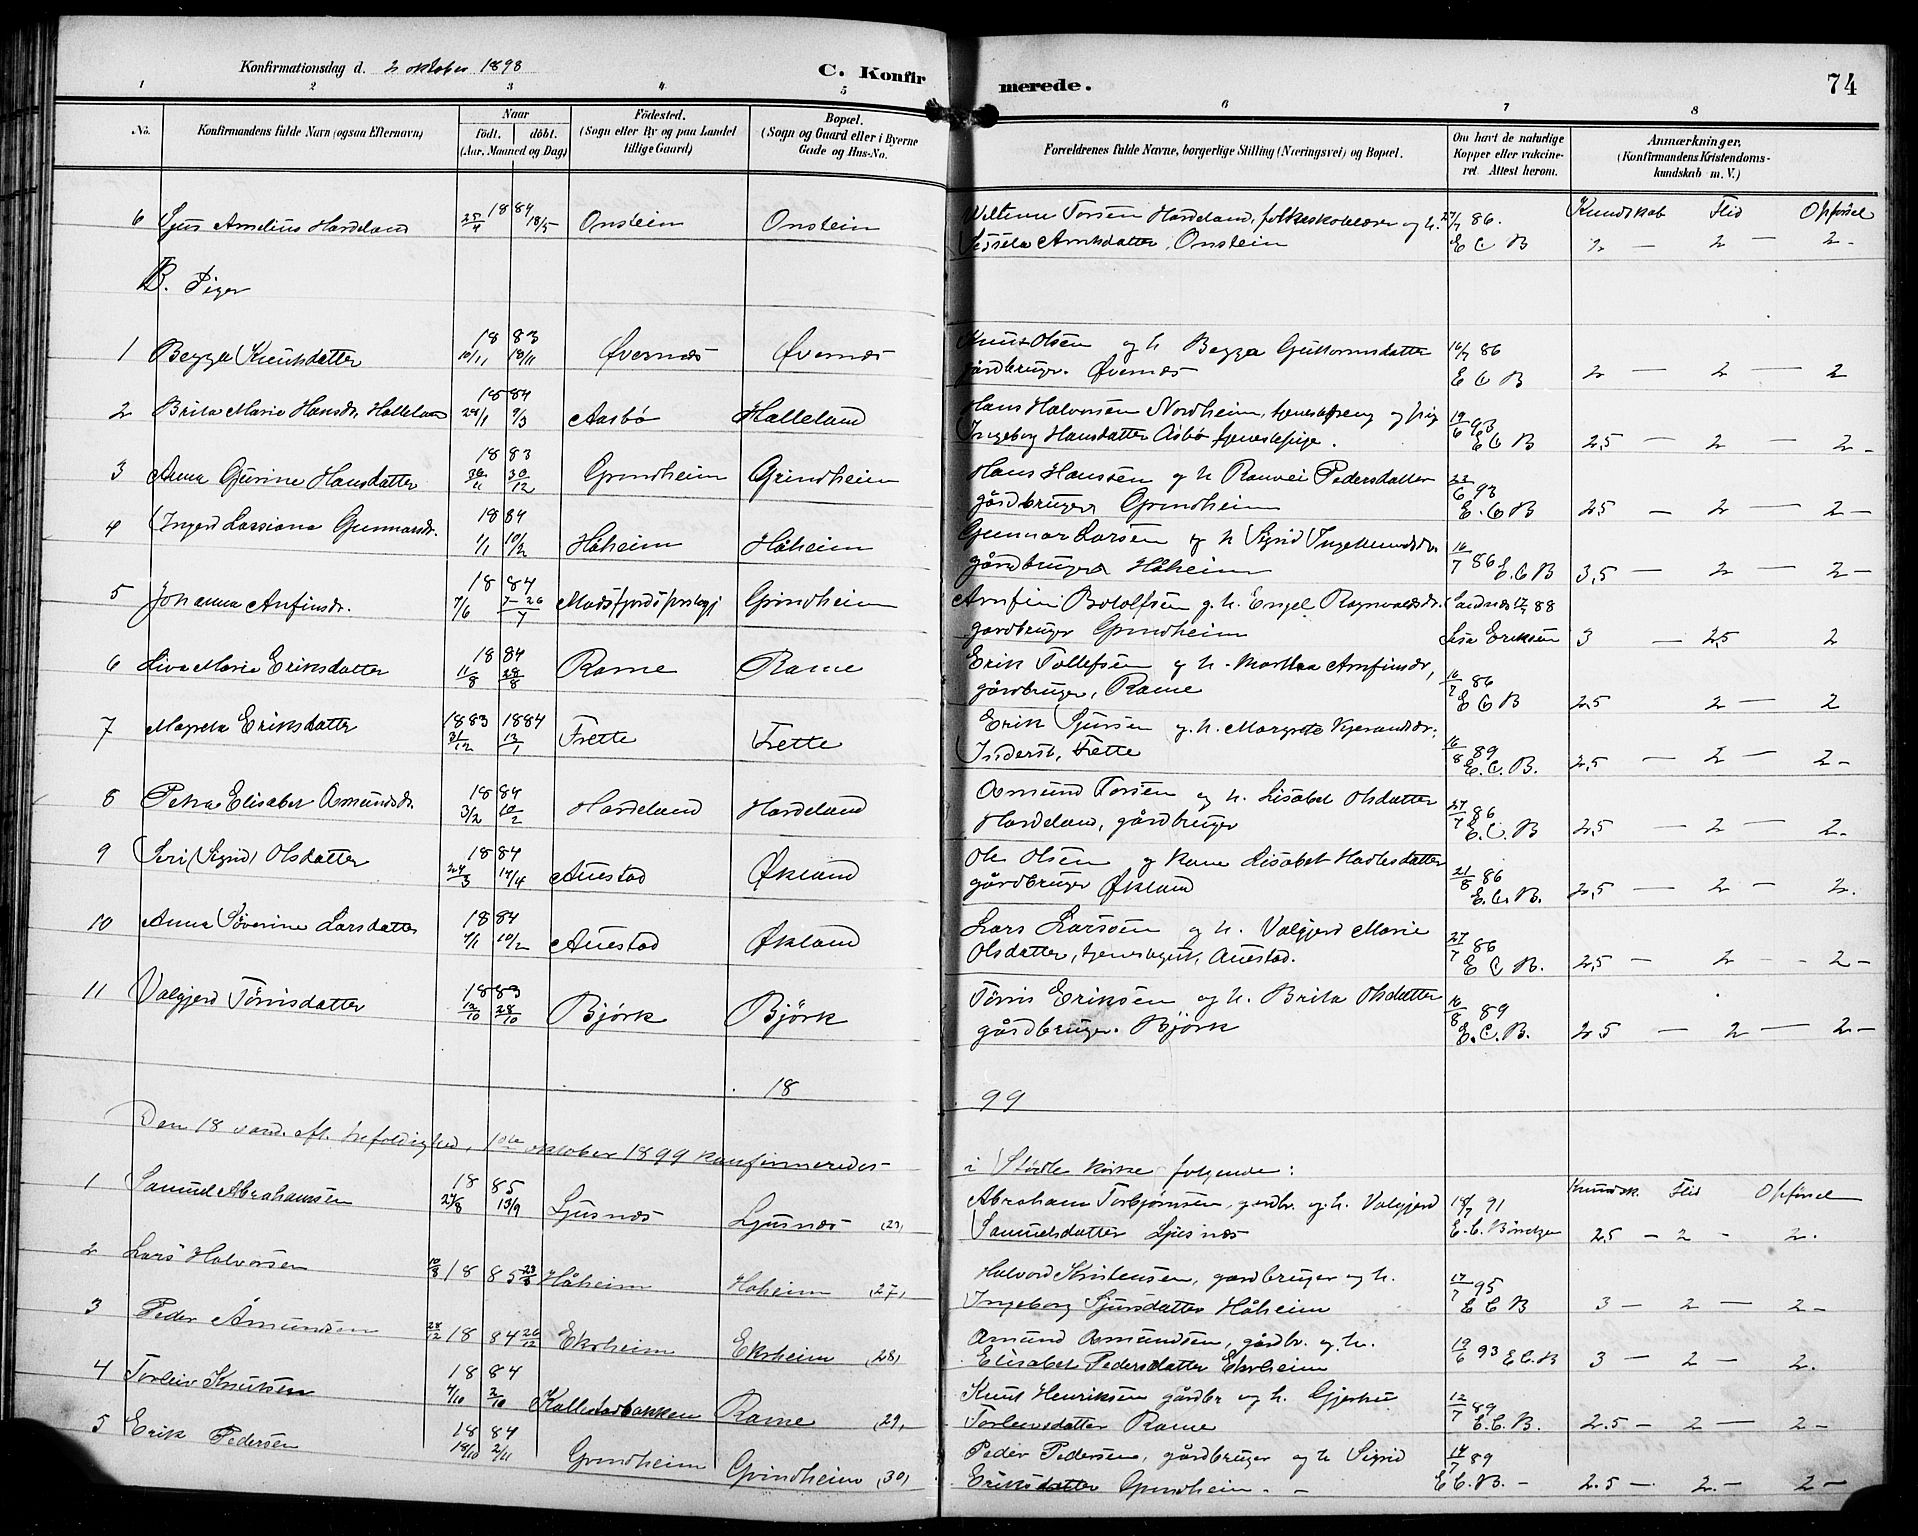 Konfirmationsdag d. 2 oktober 1898
C. Konfirmerede.
74
1 2 3 4 5 6 7 8
No.
Konfirmandens fulde Navn (ogsaa Efternavn)
Naar
födt. döbt.
(Aar, Maaned og Dag)
Födested.
(Sogn eller By og paa Landet
tillige Gaard)
Bopæl.
(Sogn og Gaard eller i Byerne
Gade og Hus-No.
Forældrenes fulde Navne, borgerlige Stilling (Næringsvei) og Bopæl.
Om havt de naturlige
Kopper eller vakcine-
ret. Attest herom.
Anmærkninger.
(Konfirmandens Kristendoms-
kundskab m. V.)
Kundskab Flid Opførsel
6 Sjur Arnelius Hardeland 25/4 1884 18/5 Onstein Onstein Torsen Hardeland, folkeskolelærer og h. 27/7 86.
Arnesdatter, Onstein E C B 2 — 2 — 2 -
B. Piger
1 Begga Knutsdatter 10/11 1883 18/11 Øvernæs Øvernæs Knut Olsen og h Begga Guttormsdatter 16/7 86
gårdbruger. Øvernæs E C B 2 — 2 — 2
2 Brita Marie Hansdr. Halleland 24/1 1884 9/3 Aasbø Halleland Hans Halvorsen Nordheim, tjenestedreng og pig 19/6 93
Ingeborg Hansdatter Åsbø tjenestepige. E C B 2,5 — 2 — 2 -
3 Anna Gurine Hansdatter 30/11 1883 30/12 Grindheim Grindheim Hans Hanssen og h Ranvei Pedersdatter 23/6 93
gårdbruger Grindheim E. C B 2,5 — 2 — 2 -
4 Ingerd Larsiana Gunnarsdr. 1/1 1884 10/2 Håheim Håheim Gunnar Larsen og h Sigrid Ingemundsdr 16/7 86
gårdbruger Håheim E C B 3,5 — 2 — 2 -
5 Johanna Anfinsdr. 7/6 1884 7-26/7 Grindheim Arnfin Botolfsen g. h. Engel Ragnvaldsdr. Sandnæs 17/7 88
gardbruger Grindheim Eriksen 3 — 2,5 2
6 Liva Maria Eriksdatter 11/8 1884 28/8 Rame Rame Erik Tollefsen og h. Martha Arnfinsdr, 16/7 86
gårdbruger, Rame E C B 2,5 2 — 2
7 Magreta Eriksdatter 31/12 1883 13/1 1884 Frette Frette Erik Sjursen og h. Margrete
Inderst, Frette 16/8 89 E. C. B. 2,5 — 2 — 2 -
8 Petra Elisabet Asmundsdr. 3/2 1884 10/2 Hardeland Hardeland Asmund Torsen og h. Lisabet Olsdatter
Hardeland, gårdbruger 27/7 86 E. C. B 2,5 — 2 — 2 -
9 Seri (Sigrid) Olsdatter 24/3 1884 14/4 Auestad Økland Ole Olsen og kone Lisabet
gårdbruger Økland 21/8 86 E. C. B. 2,5 — 2 — 2.
10 Anna Søverine Larsdatter 4/1 1884 10/2 Auestad Økland Lars Larsen og h. Valgjerd Marie
Olsdatter, Auestad. 27/7 86 E C B. 2,5 — 2 - - 2 —
11 Valgjerd Tørrisdatter 12/10 1883 28/10 Bjørk Bjørk Tørris Eriksen og h. Brita Olsdatter
gårdbruger. Bjørk 16/8 89 E. C. B. 2,5 — 2 — 2 -
18 99
Den 18 sønd. eft. trefoldighed, 1ste oktober 1899 konfirmeredes i Stødle kirke følgende:
Kundsk. Flid Opførsel
1 Samuel Abrahamsen 27/8 1885 13/9 Ljusnæs Ljusnæs (23) Abraham Torbjørnsen, gardbr. og h. Valgjerd 18/7 91
Samuelsdatter Ljusnæs E. C. 2,5 - 2 - 2.
2 Lars Halvorsen 10/8 1885 23/8 Håheim Haheim (27) Halvord Kristensen, gardbruger og h. 17/7 95
Ingeborg Sjursdatter Håheim E C B 3 - 2 — 2 -
3 Peder Åmundsen 28/12 1884 26/12 Ekrheim Ekrheim (28) Åmund Åmundsen, gårdbr. og h.
Elisabet Pedersdatter Ekrheim 19/6 93 E C. B 3 — 2 — 2.
4 Torleiv Knutsen 4/10 1884 Rame (29) Knut Henriksen gårdbr og h. Gjertru 12/7 89
Torleivsdatter Rame E. C. B. 2.5 - 2 — 2 -
5 Erik Pedersen 18/10 1884 2/11 Grindheim Grindheim (30) Peder Pedersen, gårdbruger og h Sigrid 14/7 89
Eriksdatter Grindheim. - E C. B. - 2.5 - 2. - 2 -